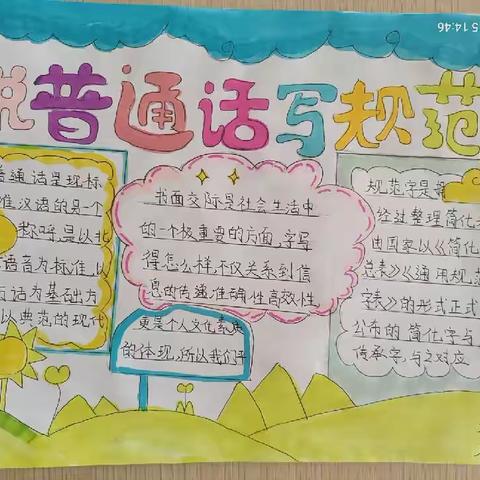 说普通话写规范
普通话是现标
准汉语的另一个
称呼,是以北
语音为标准,以
方话为基础方
以典范的现代
书面交际是社会生活中
的一个极重要的方面,字写
得怎么样,不仅关系到信
息的传递准确性高效性
更是个人文化素质
的体现,所以我们平
规范字是指
经过整理简化
由国家以《简化
总表》《通用规范
字表》的形式正式
公布的简化字与
传承字,与之对应
5 14:46